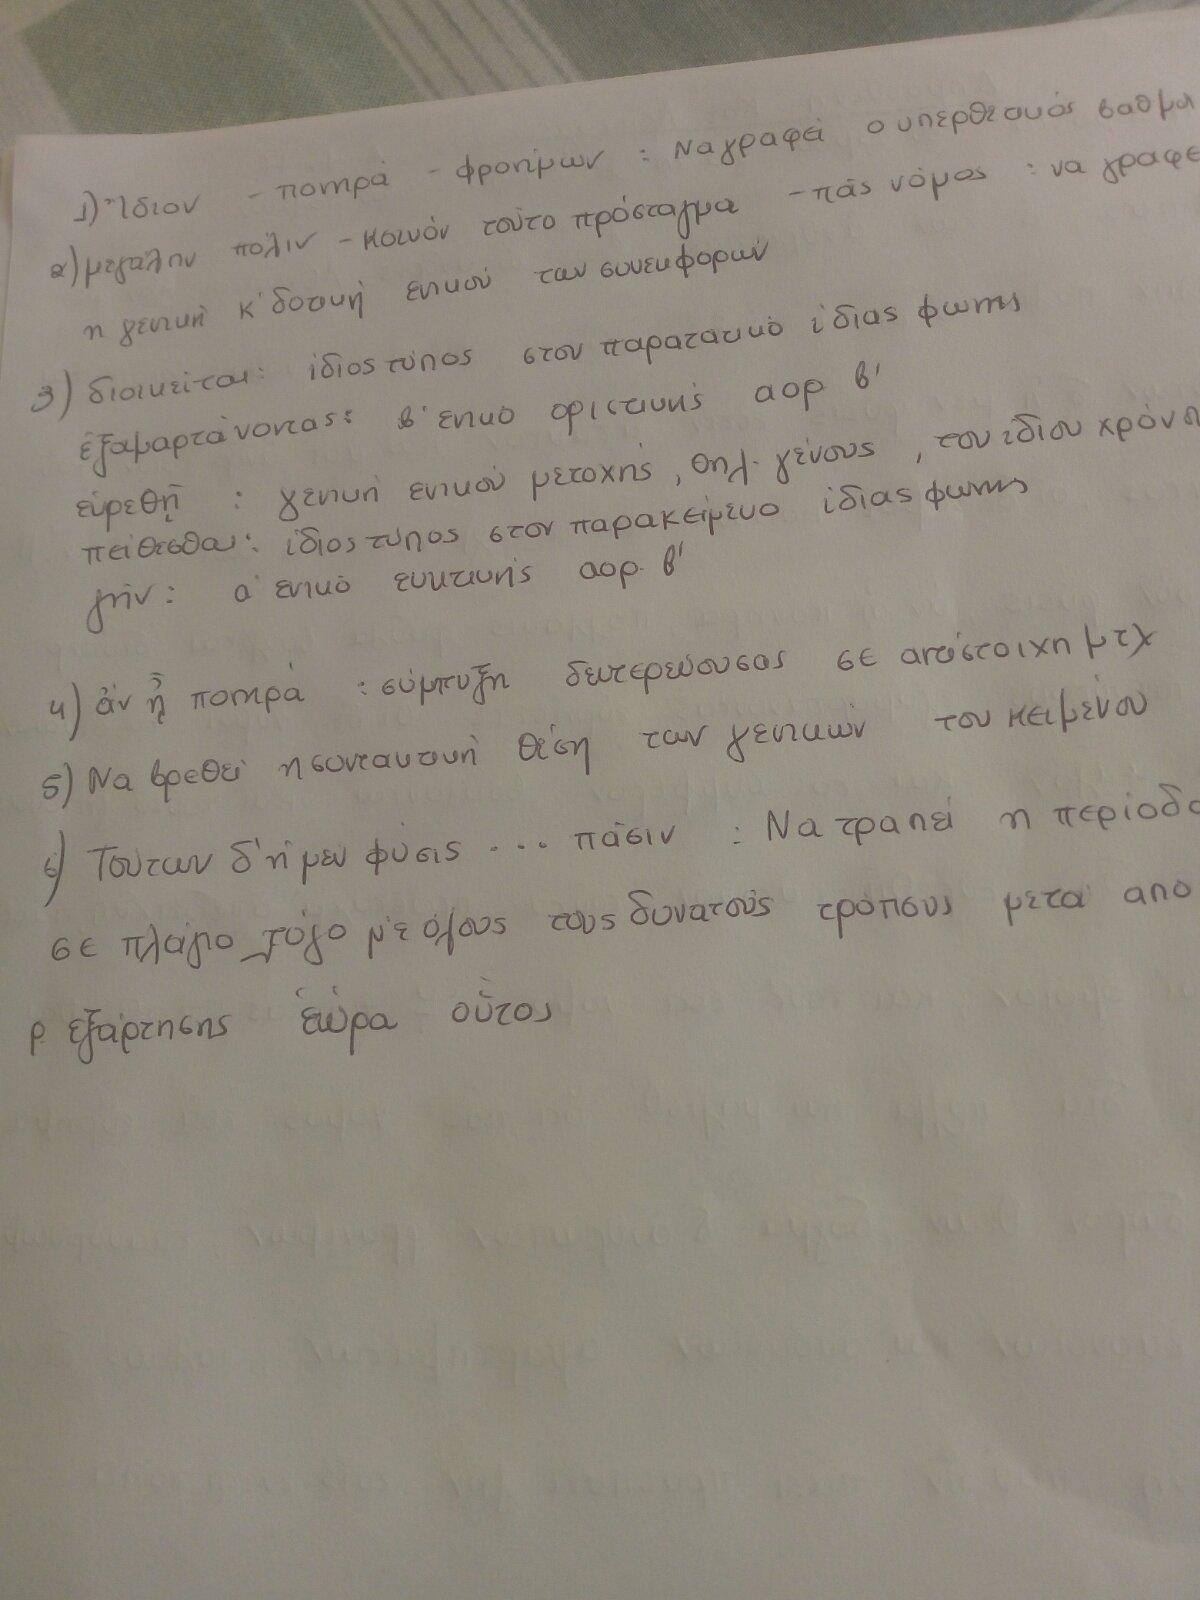 1) Ἴδιον - πονηρά - φρονίμων : Να γραφεί ο υπερθετικός βαθμό
2) μεγάλην πόλιν - κοινόν τοῦτο πρόσταγμα - πᾶς νόμος : να γραφε
η γενική κ' δοτική ενικού των συνεκφορών
3) διοικεῖται: ίδιος τύπος στον παρατατικό ίδιας φωνής
ἐξαμαρτάνοντας: β' ενικό οριστικής αορ β'
εὑρεθῇ : γενική ενικού μετοχής, θηλ. γένους, του ίδιου χρόνου
πείθεσθαι: ίδιος τύπος στον παρακείμενο ίδιας φωνής
ζῆν: α' ενικό ευκτικής αορ. β'
4) ἀν ᾖ πονηρά : σύμπτυξη δευτερεύουσας σε αντίστοιχη μτχ
5) Να βρεθεί η συντακτική θέση των γενικών του κειμένου
6) Τούτων δ' ἡ μεν φύσις ... πᾶσιν : Να τραπεί η περίοδο
σε πλάγιο λόγο με όλους τους δυνατούς τρόπους μετά από
ρ εξάρτησης ἑώρα οὗτος